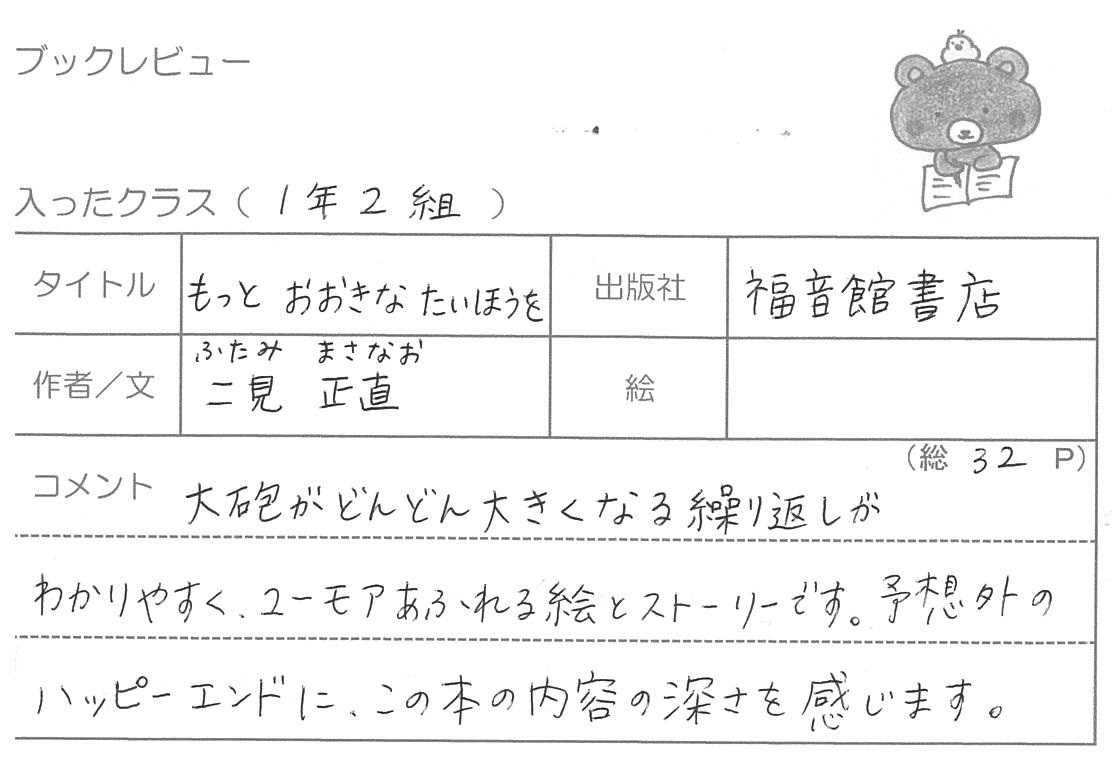 ブックレビュー
入ったクラス（ 1年2組 ）
タイトル もっと おおきな たいほうを 出版社 福音館書店
ふたみ まさなお
作者／文 二見 正直 絵
（総 32 P）
コメント 大砲がどんどん大きくなる繰り返しが
わかりやすく、ユーモアあふれる絵とストーリーです。予想外の
ハッピーエンドに、この本の内容の深さを感じます。